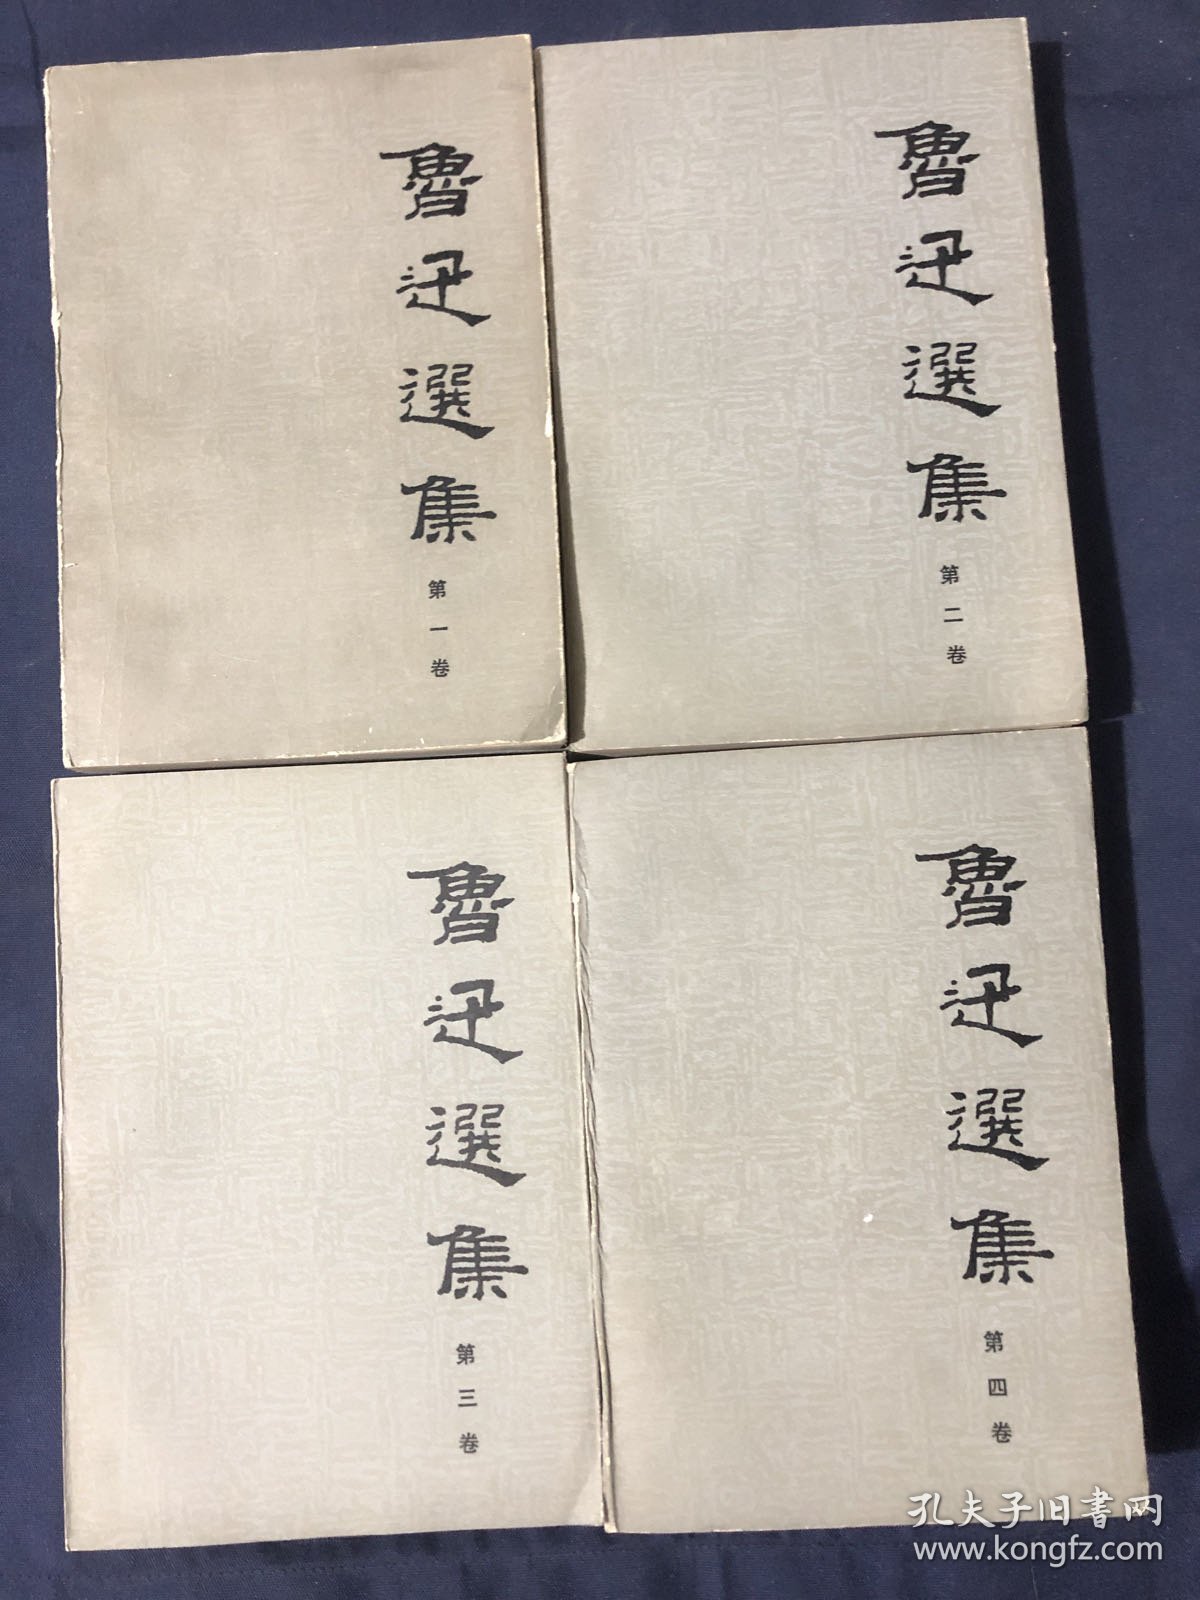 魯迅選集
第一卷
魯迅選集
第二卷
魯迅選集
第三卷
魯迅選集
第四卷
孔夫子旧書网
www.kongfz.com